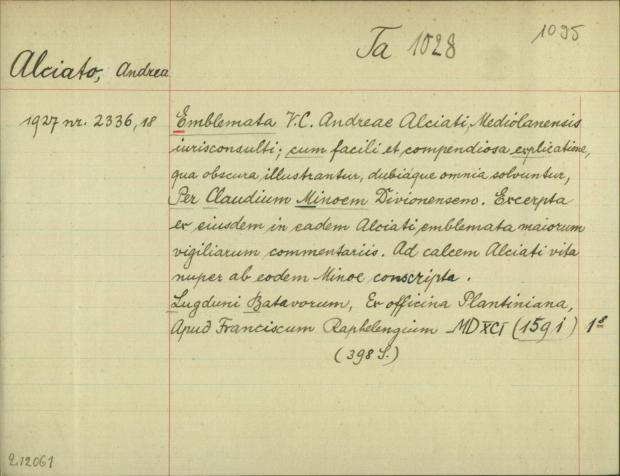 Ta 1028
1095
Alciato, Andrea
1927 nr. 2336,18
Emblemata V.C. Andreae Alciati, Mediolanensis
iurisconsulti; cum facili et compendiosa explicatione,
qua obscura illustrantur, dubiaque omnia solvuntur,
Per Claudium Minoem Divionensem. Excerpta
ex eiusdem in eadem Alciati emblemata maiorum
vigiliarum commentariis. Ad calcem Alciati vita
nuper ab eodem Minoe conscripta.
Lugduni Batavorum, Ex officina Plantiniana,
Apud Franciscum Raphelengium MDXCI (1591)
(398 S.)
212061